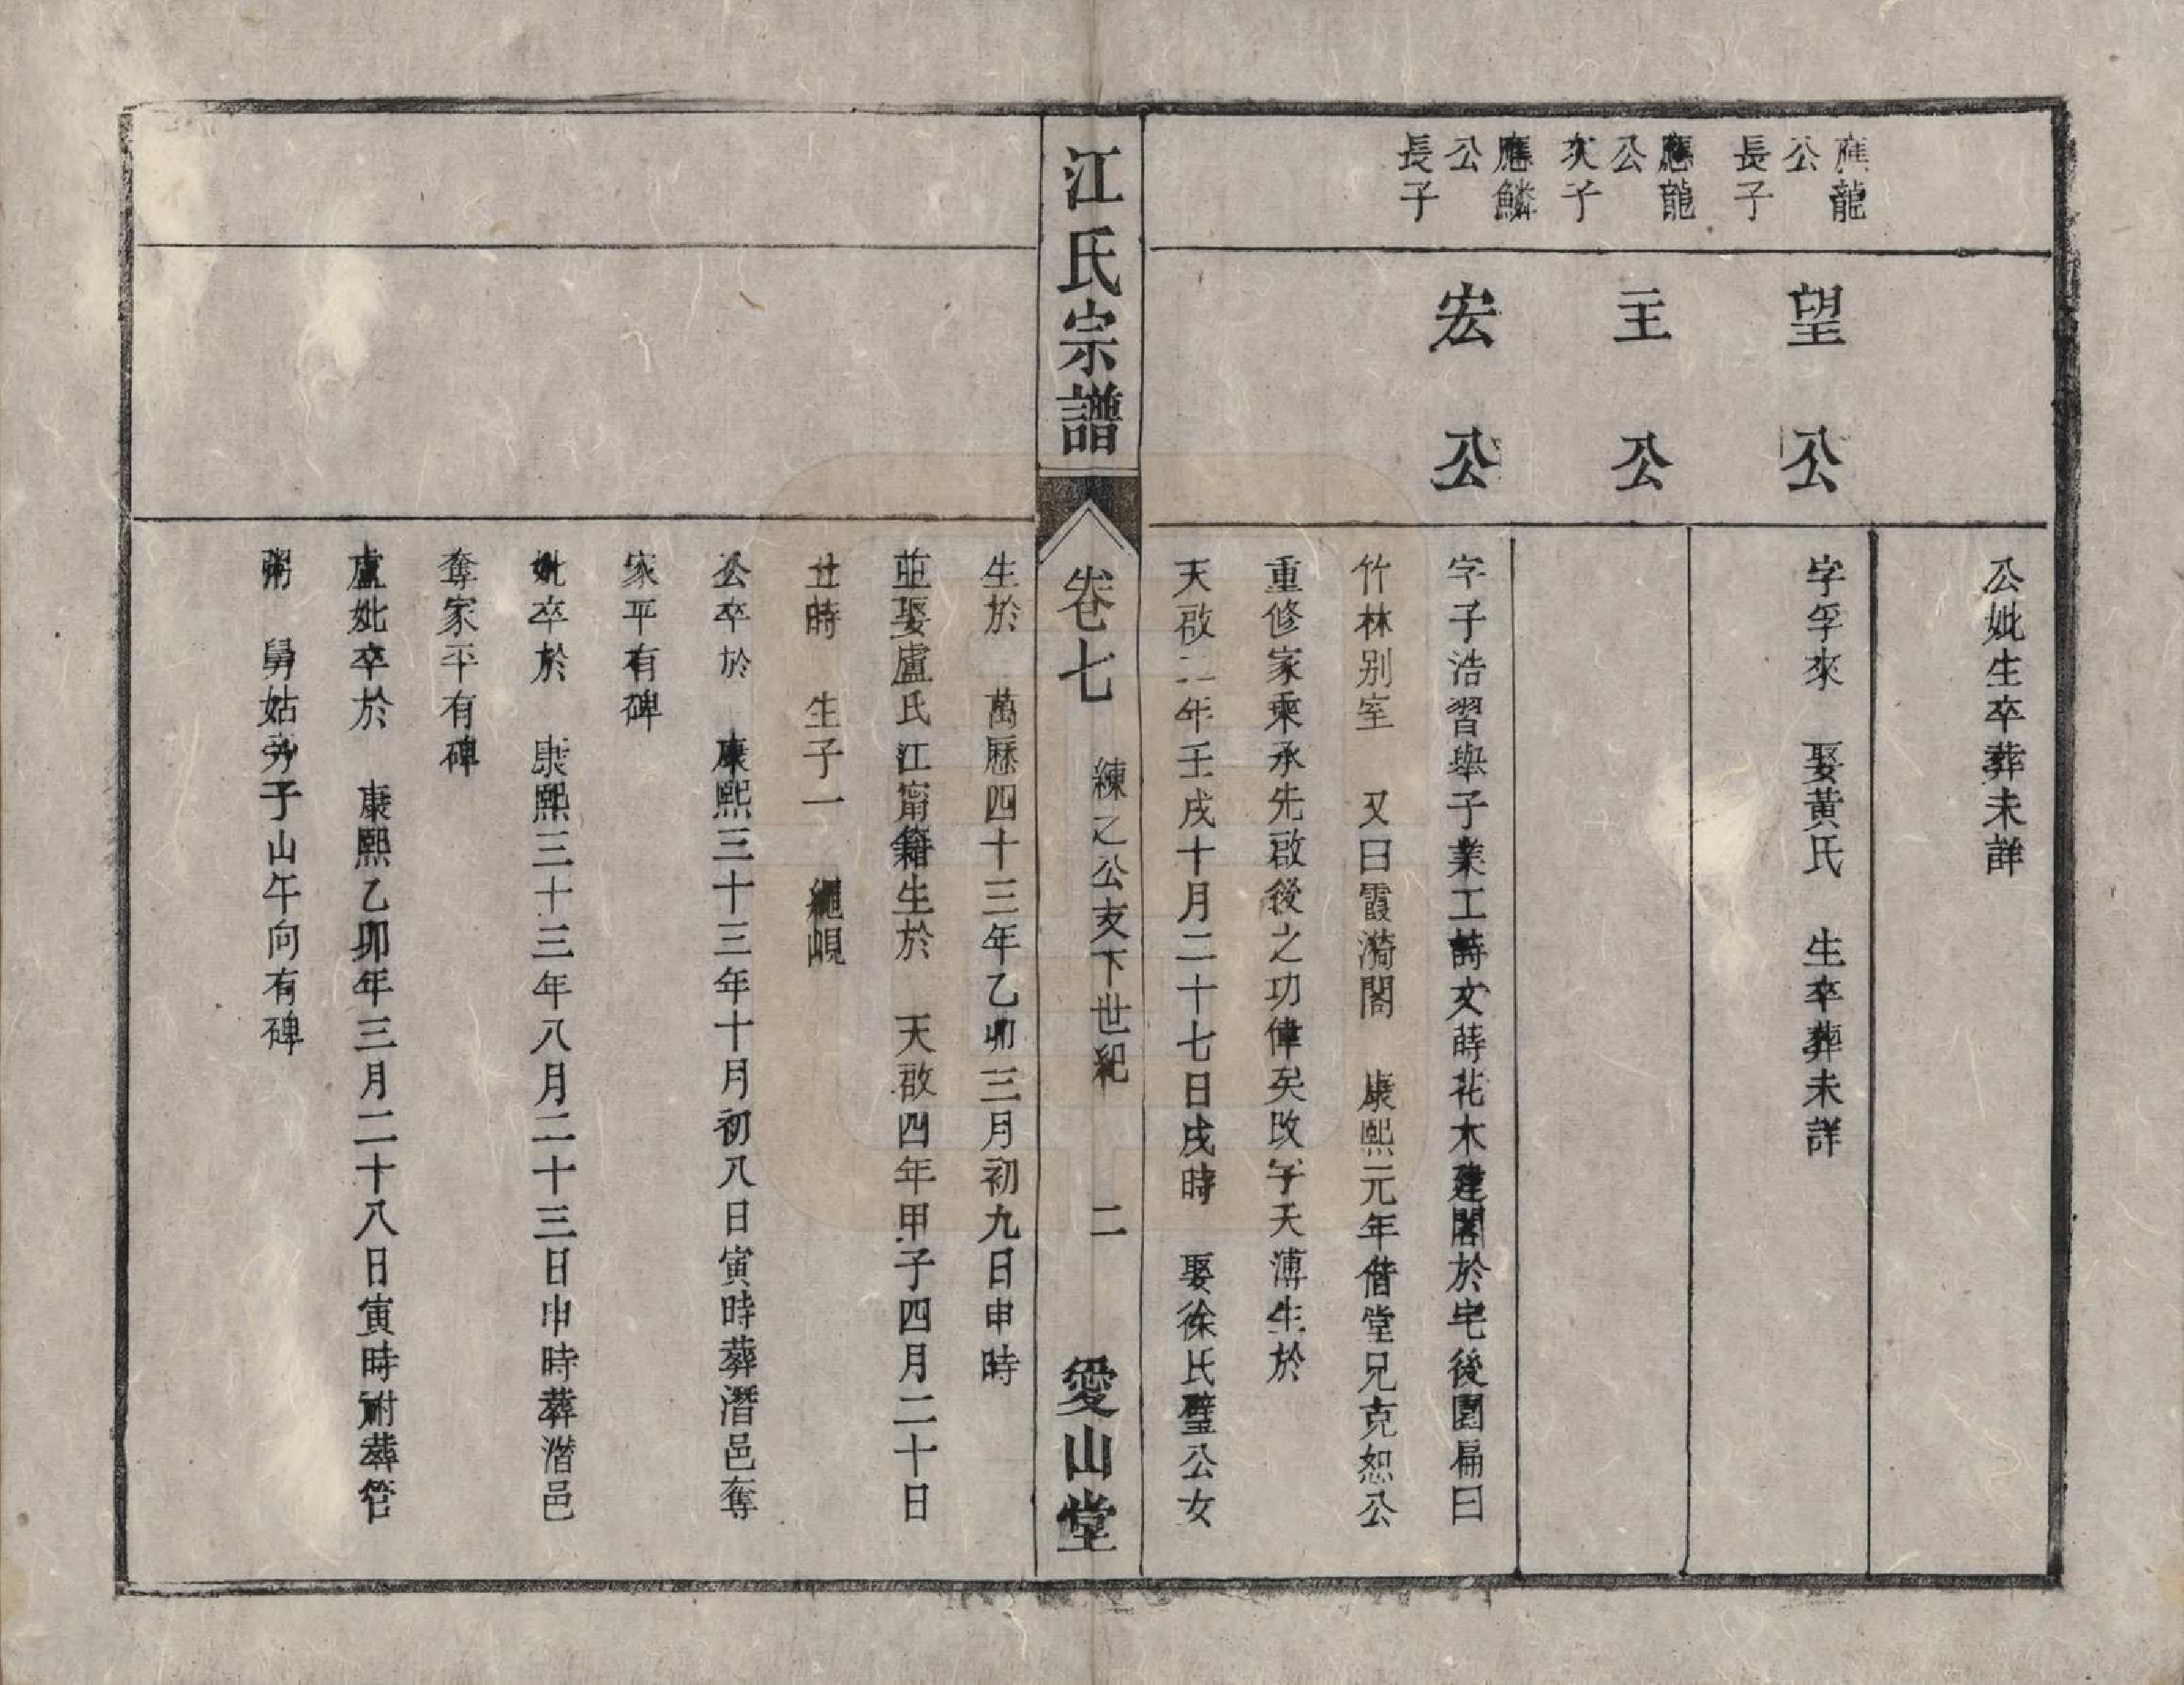 公妣生卒葬未詳
應龍
公
長子
望公
字孚來　娶黃氏　生卒葬未詳
應龍
公
次子
主公
應鱗
公
長子
宏公
字子浩習舉子業工詩文蒔花木建閣於宅後園扁曰
竹林別室　又曰霞漪閣　康熙元年偕堂兄克恕公
重修家乘承先啟後之功偉矣改字天溥生於
天啟二年壬戌十月二十七日戌時　娶徐氏璧公女
江氏宗譜
卷七
練之公支下世紀
二
愛山堂
生於　萬歷四十三年乙卯三月初九日申時
並娶盧氏江甯籍生於　天啟四年甲子四月二十日
丑時　生子一　繩峴
公卒於　康熙三十三年十月初八日寅時葬潛邑奪
家平有碑
妣卒於　康熙三十三年八月二十三日申時葬潛邑
奪家平有碑
盧妣卒於　康熙乙卯年三月二十八日寅時祔葬管
粥　舅姑旁子山午向有碑